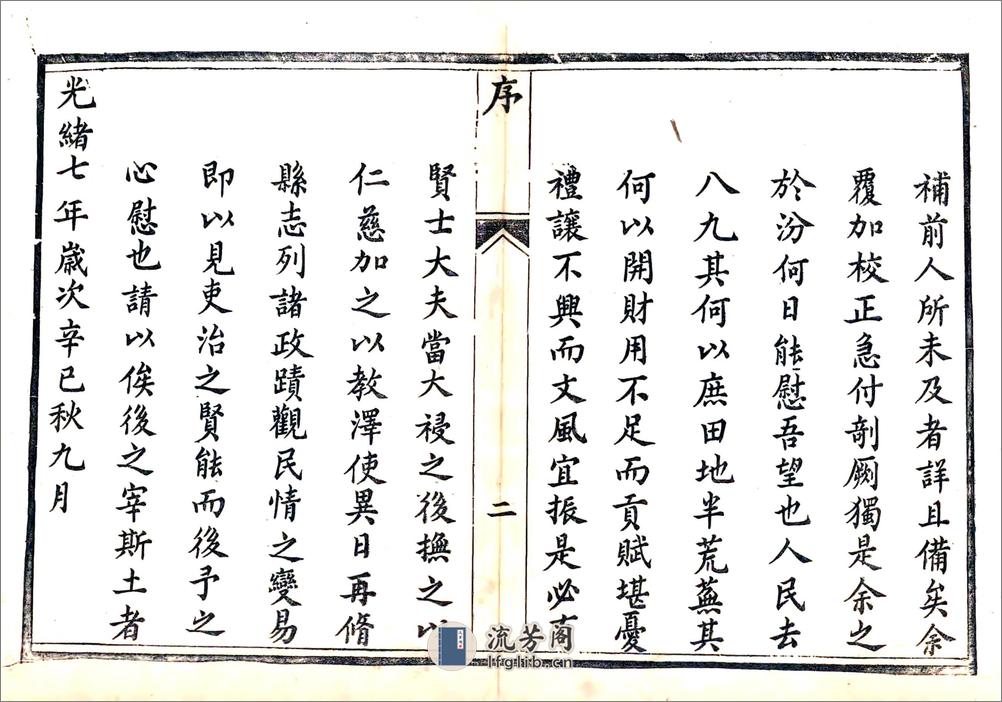 補前人所未及者詳且備矣余
覆加校正急付剞劂獨是余之
於汾何日能慰吾望也人民去
八九其何以庶田地半荒蕪其
何以開財用不足而貢賦堪憂
禮讓不興而文風宜振是必有
序
二
賢士大夫當大祲之後撫之以
仁慈加之以教澤使異日再脩
縣志列諸政蹟觀民情之變易
即以見吏治之賢能而後予之
心慰也請以俟後之宰斯土者
光緒七年歲次辛巳秋九月
流芳阁
lfglib.cn